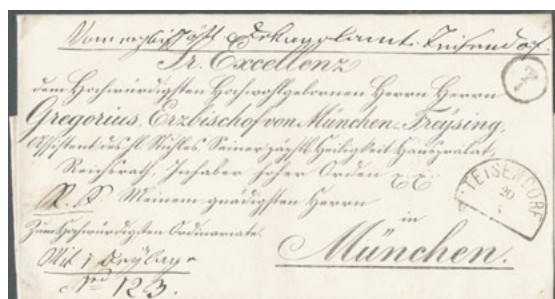 Vom erzbischöfl. Dekanalamt Teisendorf
Sr. Excellenz
dem Hochwürdigsten Hochwohlgebornen Herrn Herrn
Gregorius, Erzbischof von München-Freysing,
Assistent des hl. Stuhles, Seiner päpstl. Heiligkeit Hausprälat,
Reichsrath, Inhaber hoher Orden
Meinem gnädigsten Herrn
TEISENDORF
20
in
Zum Hochwürdigsten Ordinariate.
München.
Mit 1 Beylage
No 123.